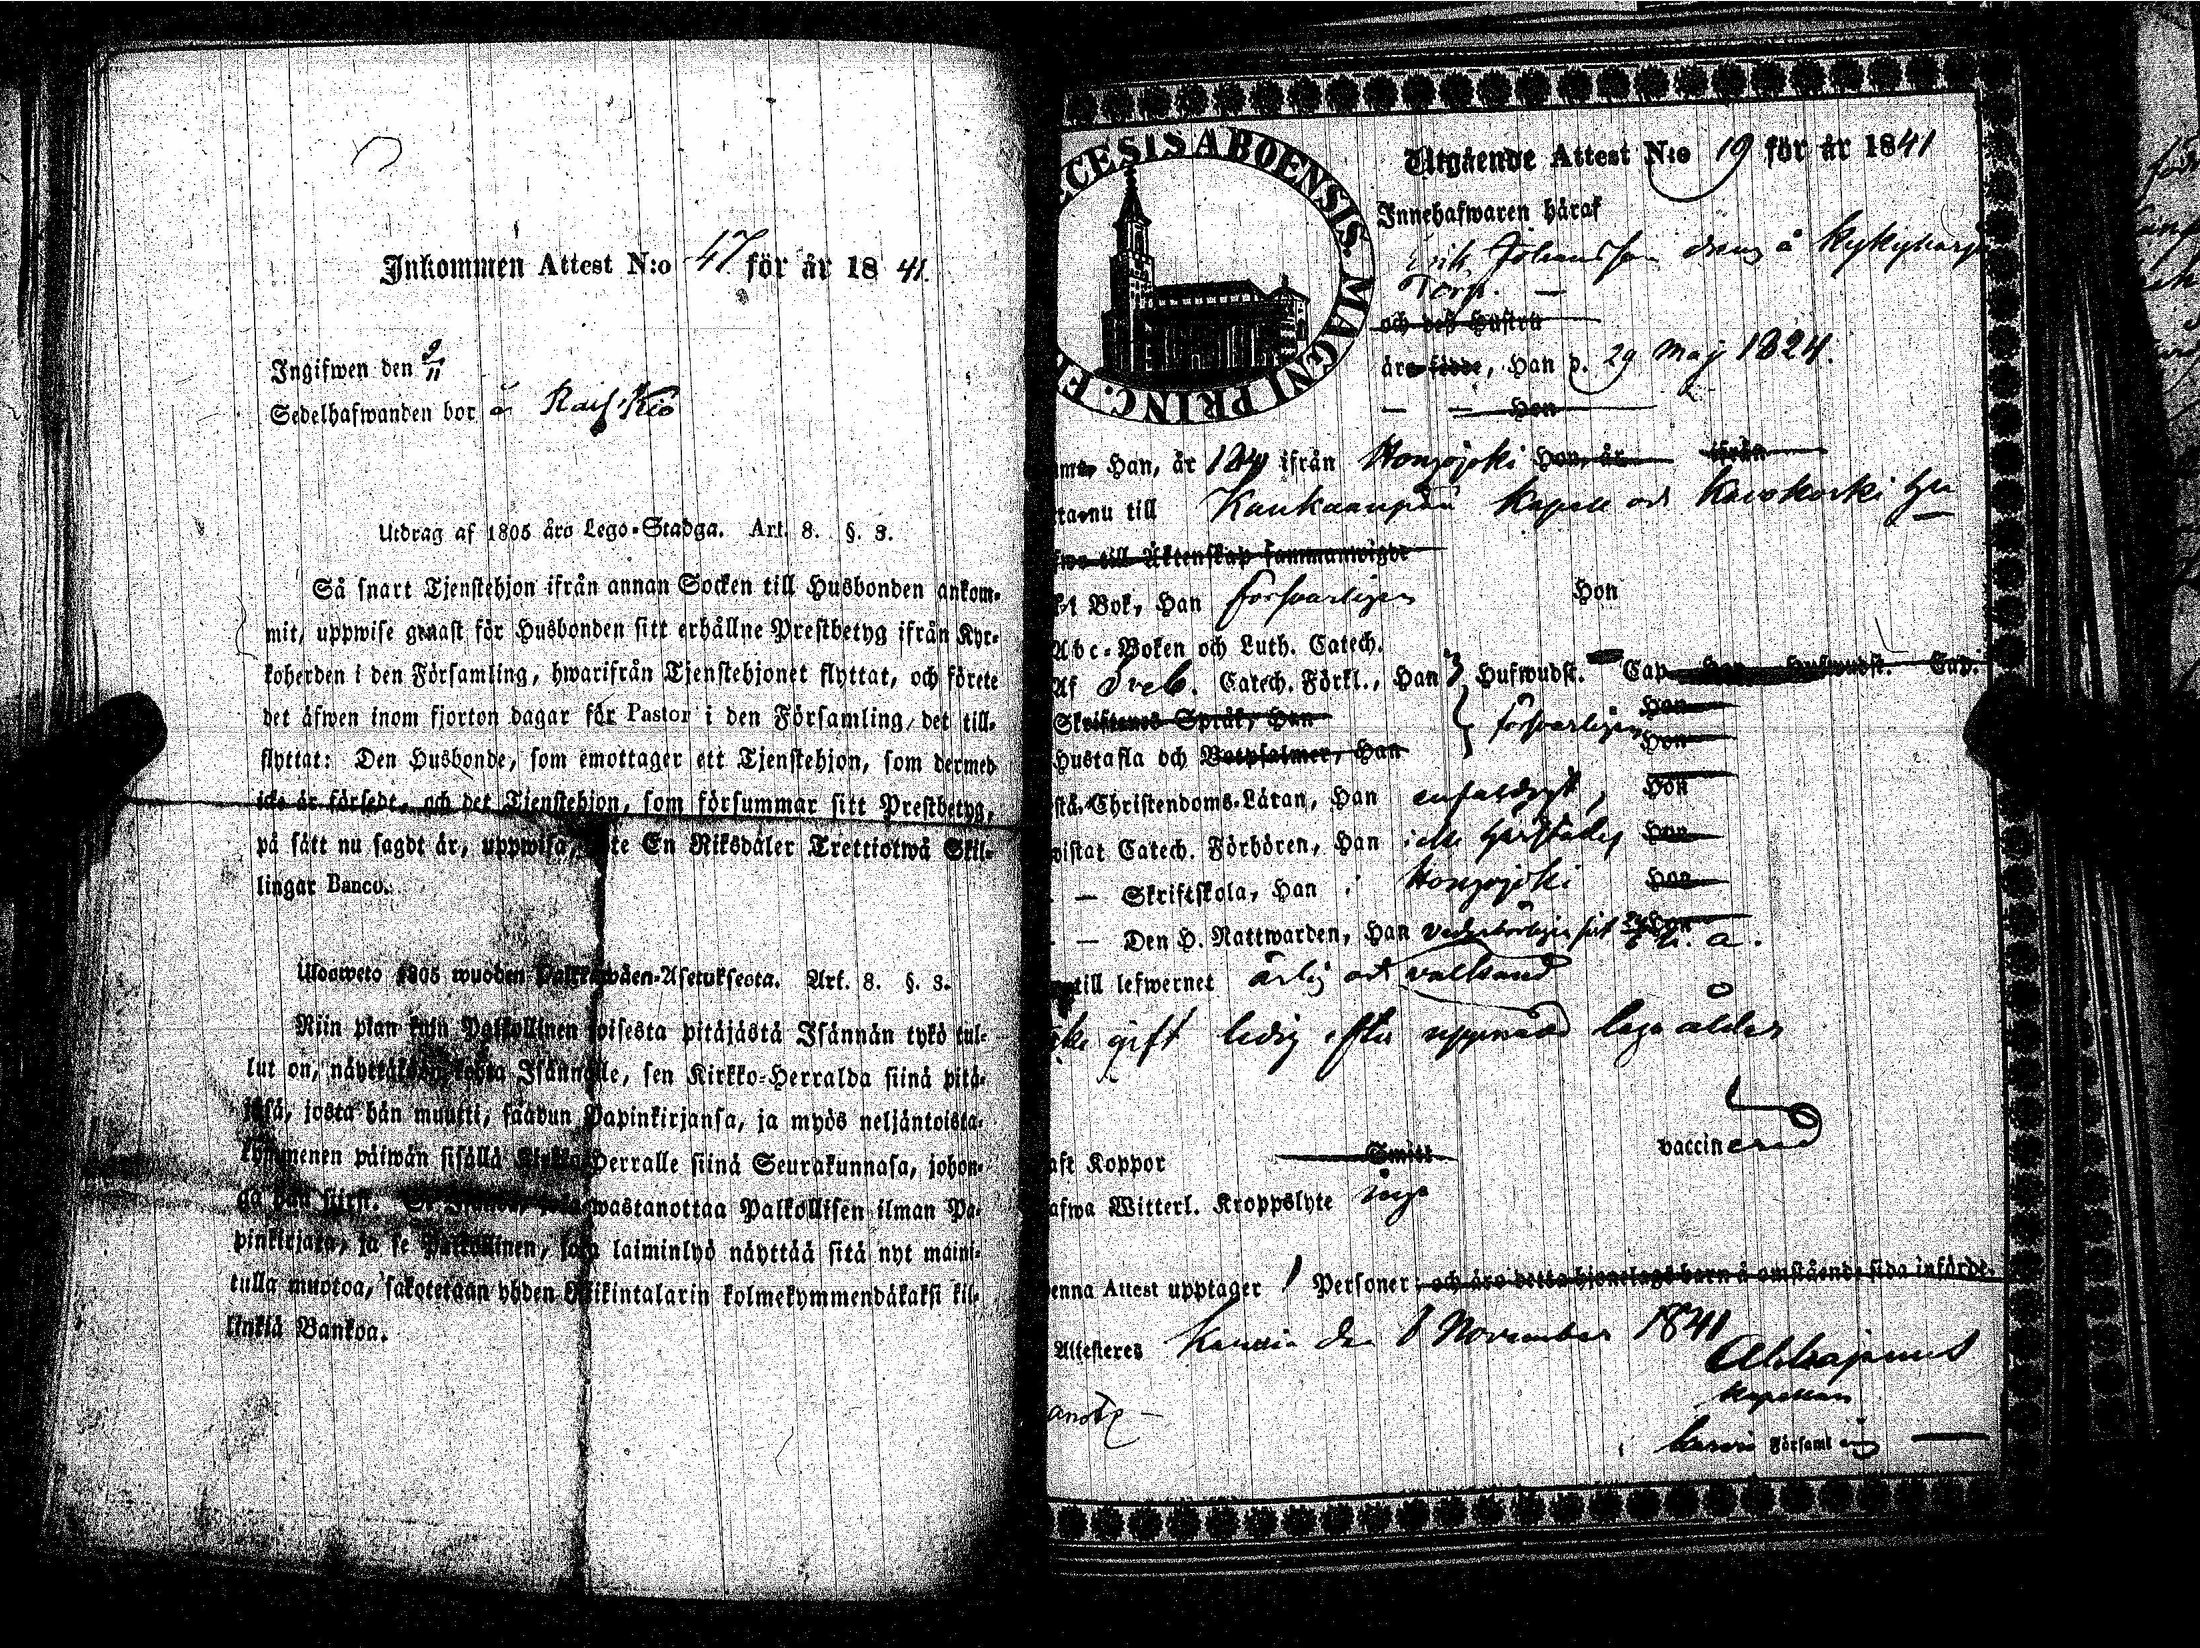 Inkommen Attest N:o 47 för år 1841.
Ingifwen den 9/11
Sedelhafwanden bor å
Utdrag af 1805 års Lego-Stadga. Art. 8. §. 3.
Så snart Tjenstehjon ifrån annan Socken till Husbonden ankom-
mit, uppwise genast för Husbonden sitt erhållne Prestbetyg ifrån Kyr-
koherden i den Församling, hwarifrån Tjenstehjonet flyttat, och förete
det äfwen inom fjorton dagar för Pastor i den Församling det till-
flyttat: Den Husbonde, som emottager ett Tjenstehjon, som dermed
icke är försedt, och det Tjenstehjon, som försummar sitt Prestbetyg,
på sätt nu sagdt är, uppwisa, En Riksdaler Trettiotwå Skil-
lingar Banco.
Ulosweto 1805 wuoden Palkkawäen-Asetuksesta. Art. 8. §. 3.
Niin pian kuin Palkollinen toisesta pitäjästä Isännän tykö tul-
lut on, näyttäköön kohta Isännälle, sen Kirkko-Herralda siinä pitä-
jäsä, josta hän muutti, saadun Papinkirjansa, ja myös neljäntoista-
kymmenen päiwän sisällä Kirkko-Herralle siinä Seurakunnasa, johon-
ga hän siirsi. wastanottaa Palkollisen ilman Pa-
pinkirjata, ja se Palkollinen, joka laiminlyö näyttää sitä nyt maini-
tulla muotoa, sakotetaan yhden Riikintalarin kolmekymmendäkaksi kil-
linkiä Bankoa.
ECESIS ABOENSIS. MAGNI PRINC. F
Utgående Attest N:o 19 för år 1841
Innehafwaren häraf
Erik Johansson dräng å
Torp.
och des Hustru
äro födde, Han d. 29 Maj 1824.
Hon
Han, år ifrån Hongojoki Hon, år ifrån
nu till Kankaanpää Kapell och
till Äktenskap sammanwigde
Bok, Han försvarligen Hon
Abc-Boken och Luth. Catech.
Af Sveb. Catech. Förkl., Han 3 Hufwudst. Cap. Hon Hufwudst. Cap.
Skriftenes Språk, Han försvarligen Hon
Hustafla och Botpsalmer, Han Hon
Christendoms-Läran, Han enfaldigt, Hon
Catech. Förhören, Han icke Hon
— Skriftskola, Han i Hongojoki Hon
— Den H. Nattwarden, Han vederbörligen sist Hon
till lefwernet ärlig och
gift ledig efter uppnådd laga ålder
Koppor Smitt vaccinerad
Witterl. Kroppslyte inga
Attest upptager 1 Personer, och äro detta hjonelags barn å omstående sida införde.
Attesteres Karvia den 8 November 1841
Kapellan
i Karvia Församling